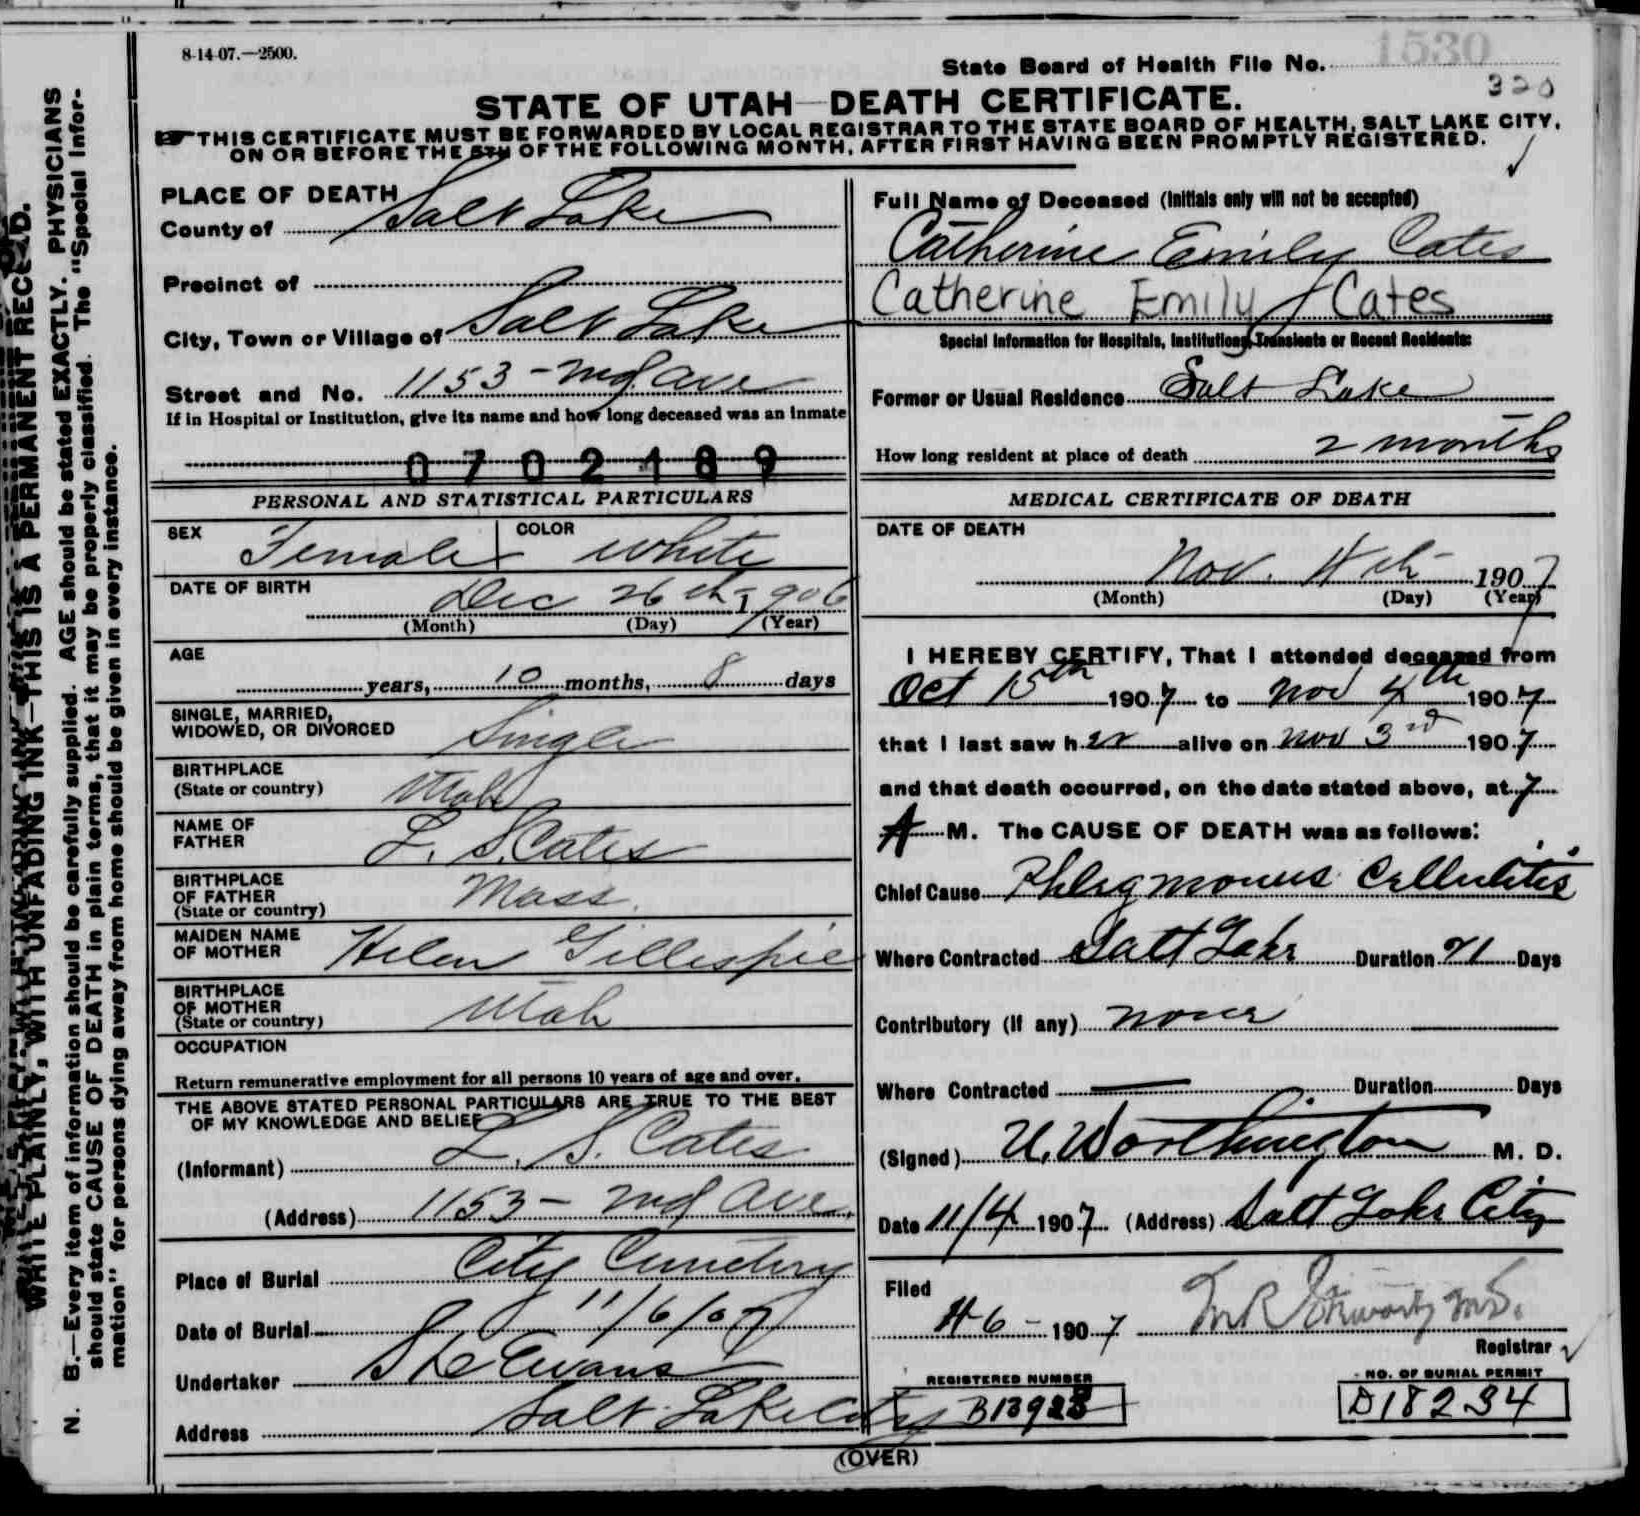 8-14-07.—2500.
State Board of Health File No. 1530
320
STATE OF UTAH—DEATH CERTIFICATE.
THIS CERTIFICATE MUST BE FORWARDED BY LOCAL REGISTRAR TO THE STATE BOARD OF HEALTH, SALT LAKE CITY,
ON OR BEFORE THE 5TH OF THE FOLLOWING MONTH, AFTER FIRST HAVING BEEN PROMPTLY REGISTERED.
WRITE PLAINLY, WITH UNFADING INK—THIS IS A PERMANENT RECORD.
N. B.—Every item of information should be carefully supplied. AGE should be stated EXACTLY. PHYSICIANS
should state CAUSE OF DEATH in plain terms, that it may be properly classified. The "Special Infor-
mation" for persons dying away from home should be given in every instance.
PLACE OF DEATH
County of Salt Lake
Precinct of
City, Town or Village of Salt Lake
Street and No. 1153 - 2nd Ave
If in Hospital or Institution, give its name and how long deceased was an inmate
0702189
PERSONAL AND STATISTICAL PARTICULARS
SEX Female COLOR White
DATE OF BIRTH Dec 26th 1906
(Month) (Day) (Year)
AGE
years, 10 months, 8 days
SINGLE, MARRIED,
WIDOWED, OR DIVORCED Single
BIRTHPLACE
(State or country) Utah
NAME OF
FATHER L. S. Cates
BIRTHPLACE
OF FATHER
(State or country) Mass.
MAIDEN NAME
OF MOTHER Helen Gillespie
BIRTHPLACE
OF MOTHER
(State or country) Utah
OCCUPATION
Return remunerative employment for all persons 10 years of age and over.
THE ABOVE STATED PERSONAL PARTICULARS ARE TRUE TO THE BEST
OF MY KNOWLEDGE AND BELIEF
(Informant) L. S. Cates
(Address) 1153 - 2nd Ave.
Place of Burial City Cemetery
Date of Burial 11/6/07
Undertaker S D Evans
Address Salt Lake City
Full Name of Deceased (Initials only will not be accepted)
Catherine Emily Cates
Catherine Emily Cates
Special Information for Hospitals, Institutions, Transients or Recent Residents:
Former or Usual Residence Salt Lake
How long resident at place of death 2 months
MEDICAL CERTIFICATE OF DEATH
DATE OF DEATH
Nov. 4th 1907
(Month) (Day) (Year)
I HEREBY CERTIFY, That I attended deceased from
Oct 15th 1907 to Nov 4th 1907
that I last saw her alive on Nov 3rd 1907
and that death occurred, on the date stated above, at 7
A M. The CAUSE OF DEATH was as follows:
Chief Cause Phlegmonous Cellulitis
Where Contracted Salt Lake Duration 21 Days
Contributory (if any) none
Where Contracted — Duration Days
(Signed) U. Worthington M. D.
Date 11/4 1907 (Address) Salt Lake City
Filed
11-6- 1907
Registrar
REGISTERED NUMBER
B13923
NO. OF BURIAL PERMIT
D18234
(OVER)